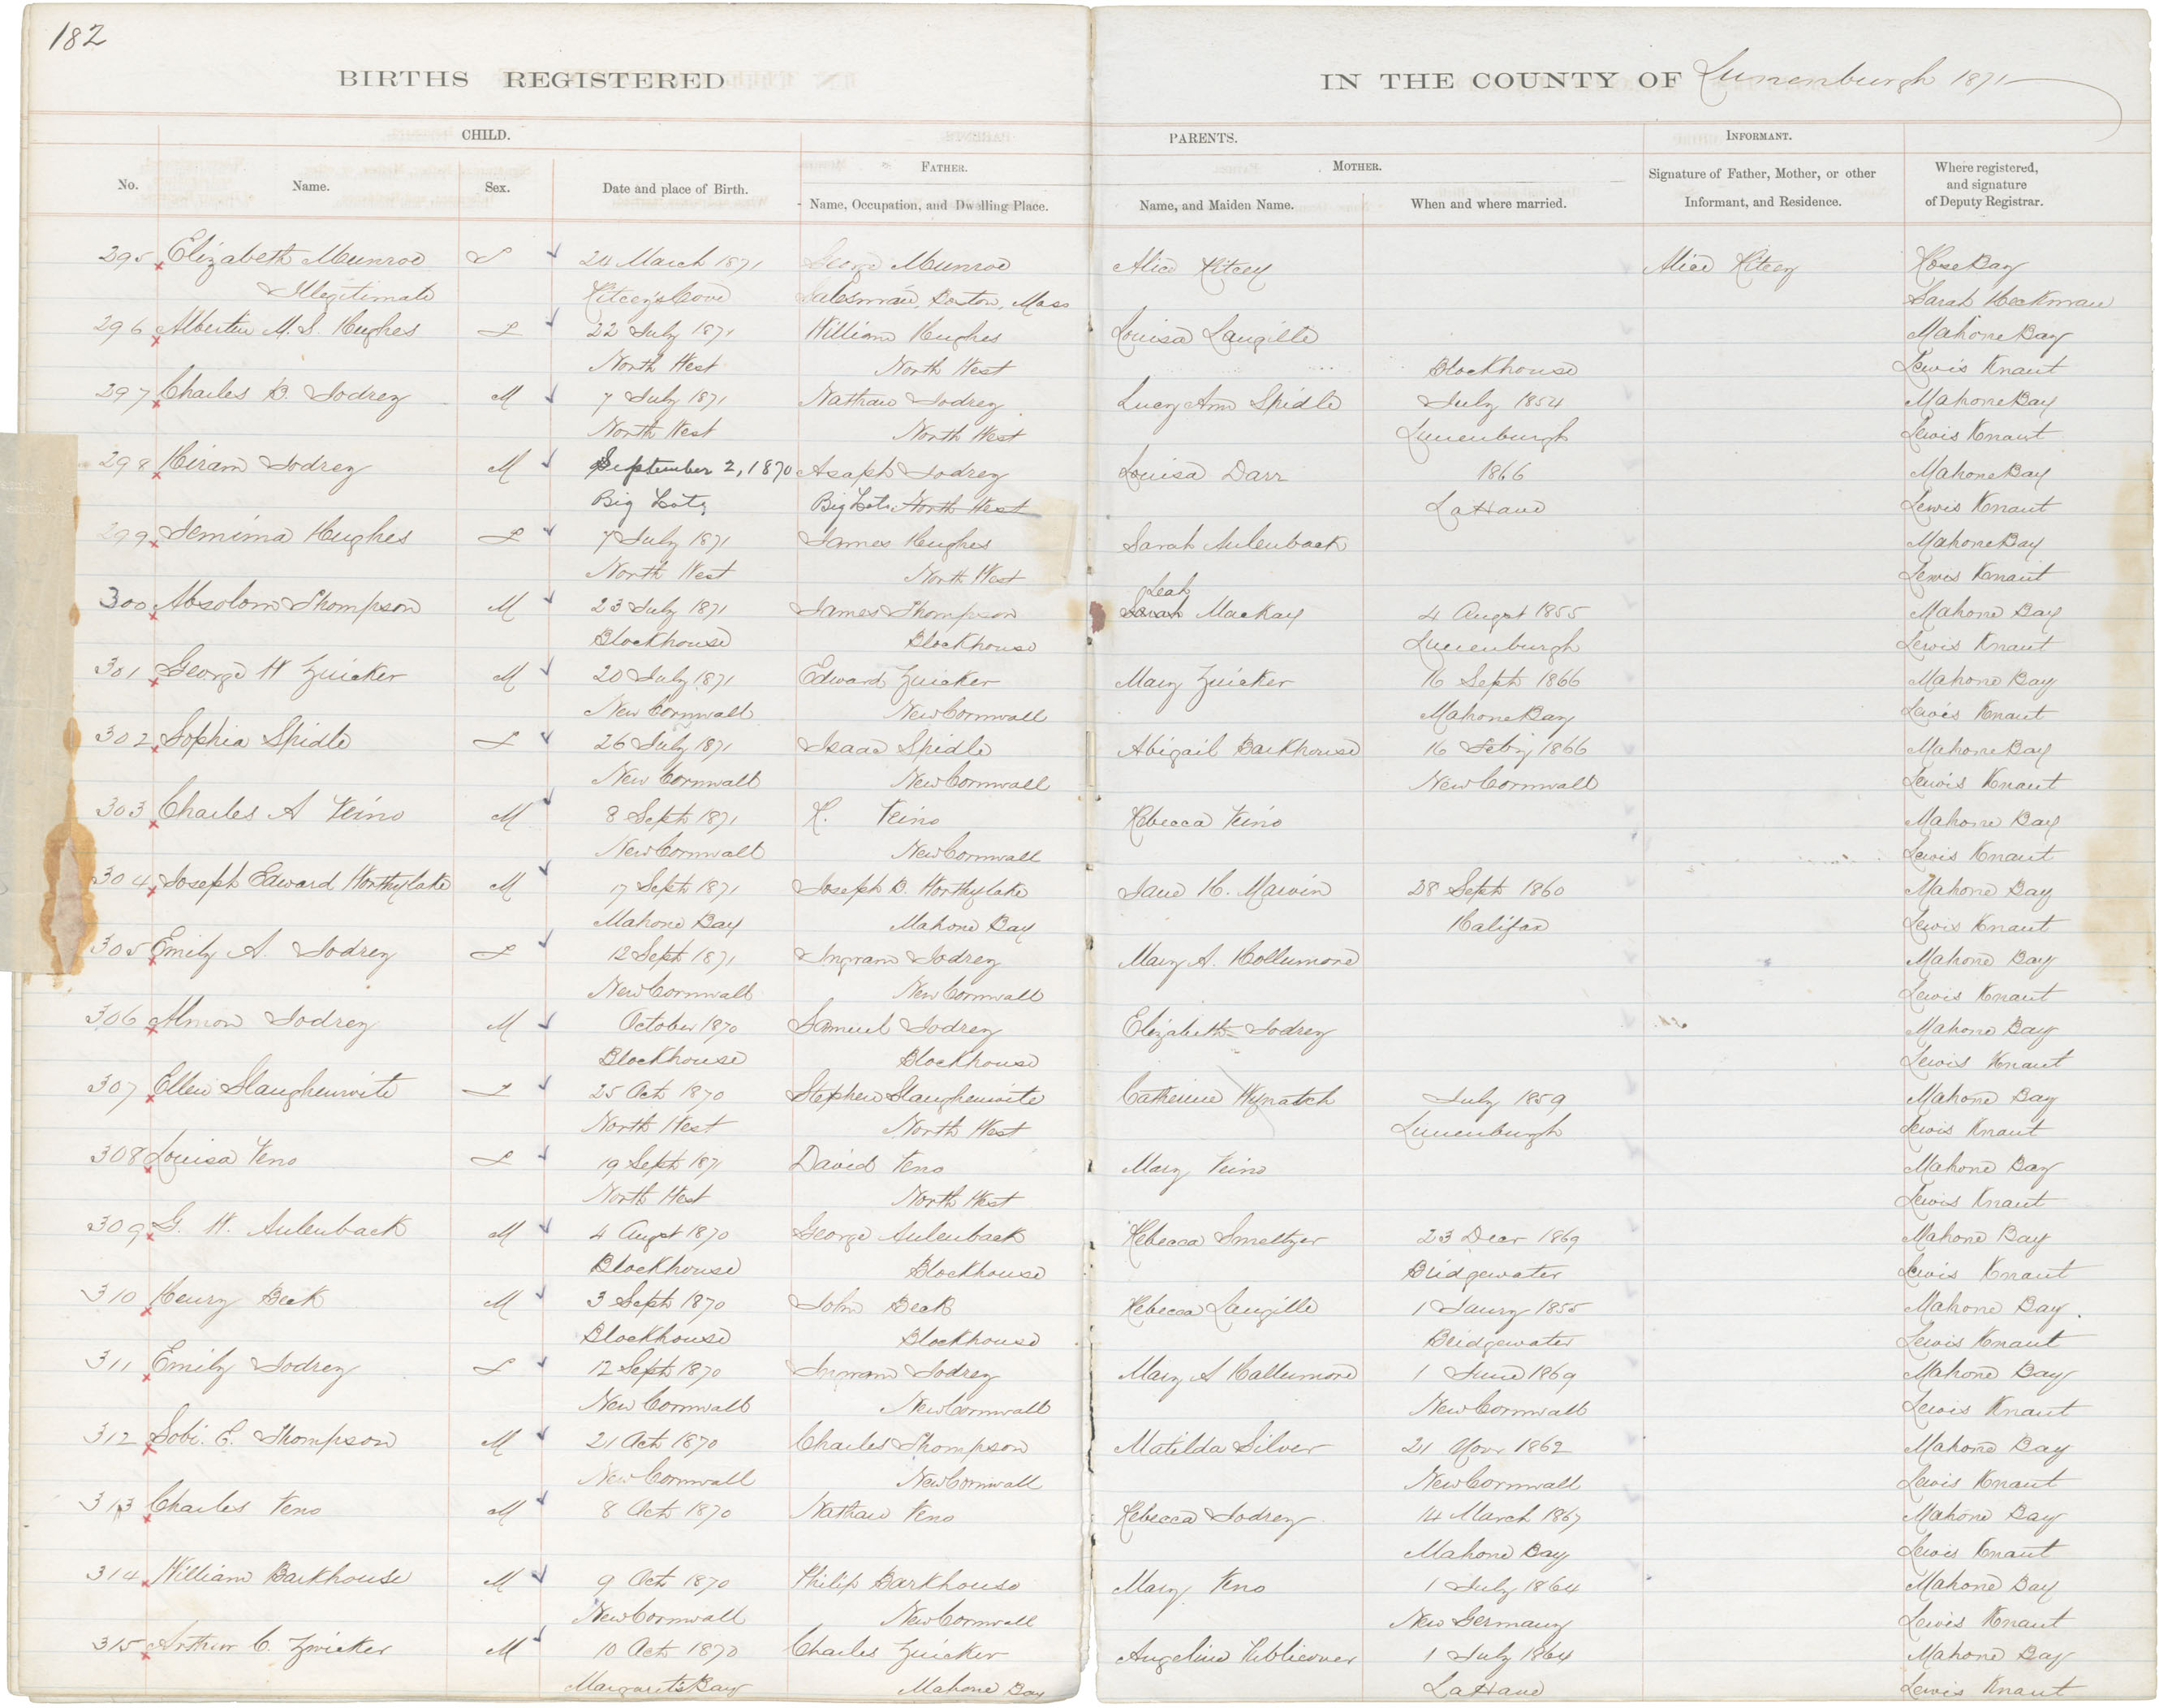 182
BIRTHS REGISTERED IN THE COUNTY OF Lunenburgh 1871
CHILD. PARENTS. INFORMANT.
No. Name. Sex. Date and place of Birth. FATHER. Name, Occupation, and Dwelling Place. MOTHER. Name, and Maiden Name. When and where married. Signature of Father, Mother, or other Informant, and Residence. Where registered, and signature of Deputy Registrar.
295 Elizabeth Munroe F 24 March 1871 George Munroe Alice Ritcey Alice Ritcey Rose Bay
Illegitimate Ritcey's Cove Salesman, Boston, Mass Sarah Heckman
296 M. S. Hughes F 22 July 1871 William Hughes Louisa Langille Mahone Bay
North West North West Blockhouse Lewis Knaut
297 Charles B. Jodrey M 7 July 1871 Nathan Jodrey Lucy Ann Spidle July 1854 Mahone Bay
North West North West Lunenburgh Lewis Knaut
298 Hiram Jodrey M September 2, 1870 Asaph Jodrey Louisa Darr 1866 Mahone Bay
Big Lots Big Lots North West LaHave Lewis Knaut
299 Jemima Hughes F 7 July 1871 James Hughes Sarah Aulenback Mahone Bay
North West North West Lewis Knaut
Leah
300 Absolom Thompson M 23 July 1871 James Thompson Sarah MacKay 4 August 1855 Mahone Bay
Blockhouse Blockhouse Lunenburgh Lewis Knaut
301 George H Zwicker M 20 July 1871 Edward Zwicker Mary Zwicker 16 Sept 1866 Mahone Bay
New Cornwall New Cornwall Mahone Bay Lewis Knaut
302 Sophia Spidle F 26 July 1871 Isaac Spidle Abigail Barkhouse 16 Feby 1866 Mahone Bay
New Cornwall New Cornwall New Cornwall Lewis Knaut
303 Charles A Veino M 8 Sept 1871 R. Veino Rebecca Veino Mahone Bay
New Cornwall New Cornwall Lewis Knaut
304 Joseph Edward Worthylake M 17 Sept 1871 Joseph B. Worthylake Jane H. Marvin 28 Sept 1860 Mahone Bay
Mahone Bay Mahone Bay Halifax Lewis Knaut
305 Emily A. Jodrey F 12 Sept 1871 Ingram Jodrey Mary A. Hollumore Mahone Bay
New Cornwall New Cornwall Lewis Knaut
306 Almon Jodrey M October 1870 Samuel Jodrey Elizabeth Jodrey Mahone Bay
Blockhouse Blockhouse Lewis Knaut
307 Ellen Slaughenwite F 25 Oct 1870 Stephen Slaughenwite Catherine Wynatch July 1859 Mahone Bay
North West North West Lunenburgh Lewis Knaut
308 Louisa Veno F 19 Sept 1871 David Veno Mary Veino Mahone Bay
North West North West Lewis Knaut
309 G. H. Aulenback M 4 August 1870 George Aulenback Rebecca Smeltzer 23 Decr 1869 Mahone Bay
Blockhouse Blockhouse Bridgewater Lewis Knaut
310 Henry Beck M 3 Sept 1870 John Beck Rebecca Langille 1 Jany 1855 Mahone Bay.
Blockhouse Blockhouse Bridgewater Lewis Knaut
311 Emily Jodrey F 12 Sept 1870 Ingram Jodrey Mary A Hallumore 1 June 1869 Mahone Bay
New Cornwall New Cornwall New Cornwall Lewis Knaut
312 Sobi. E. Thompson M 21 Oct 1870 Charles Thompson Matilda Silver 21 Novr 1862 Mahone Bay
New Cornwall New Cornwall New Cornwall Lewis Knaut
313 Charles Veno M 8 Oct 1870 Nathan Veno Rebecca Jodrey 14 March 1867 Mahone Bay
Mahone Bay Lewis Knaut
314 William Barkhouse M 9 Oct 1870 Philip Barkhouse Mary Veno 1 July 1864 Mahone Bay
New Cornwall New Cornwall New Germany Lewis Knaut
315 Arthur C. Zwicker M 10 Oct 1870 Charles Zwicker Angeline Publicover 1 July 1864 Mahone Bay
Margaret's Bay Mahone Bay LaHave Lewis Knaut